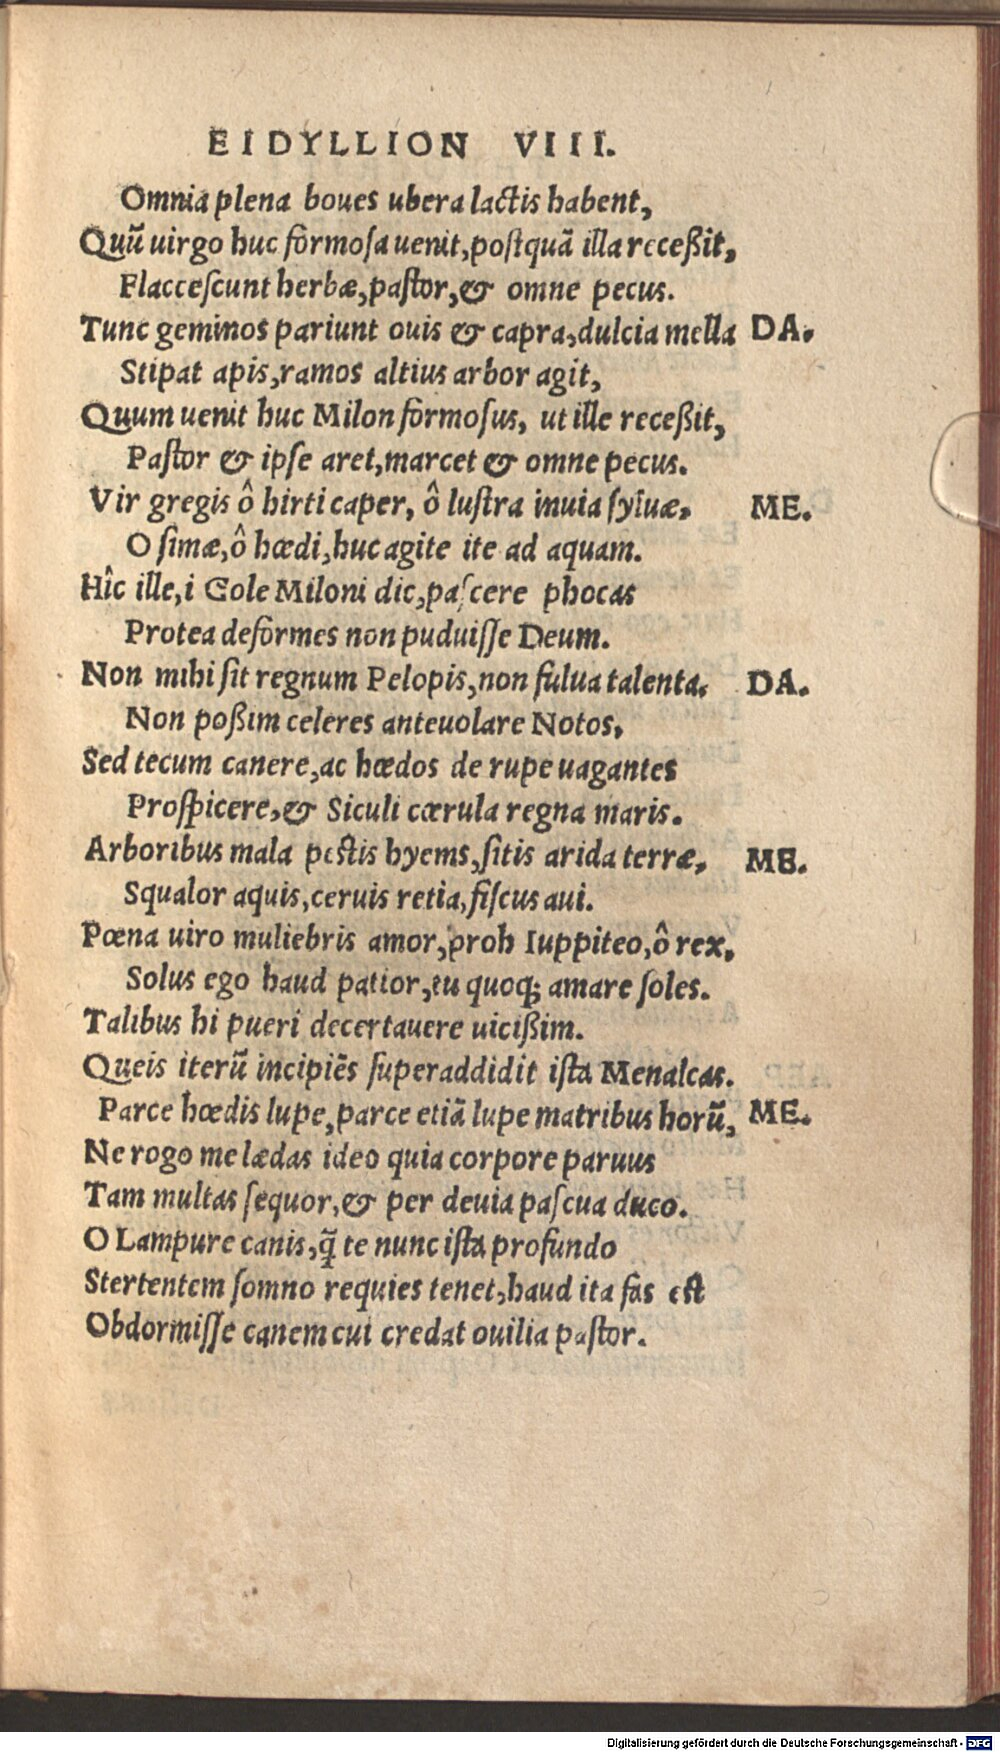 EIDYLLION VIII.
Omnia plena boues ubera lactis habent,
Quũ uirgo huc formosa uenit, postquã illa receßit,
Flaccescunt herbæ, pastor, & omne pecus.
Tunc geminos pariunt ouis & capra, dulcia mella DA.
Stipat apis, ramos altius arbor agit,
Quum uenit huc Milon formosus, ut ille receßit,
Pastor & ipse aret, marcet & omne pecus.
Vir gregis ô hirti caper, ô lustra inuia syluæ, ME.
O simæ, ô hœdi, huc agite ite ad aquam.
Hîc ille, i Cole Miloni dic, pascere phocas
Protea deformes non puduisse Deum.
Non mihi sit regnum Pelopis, non fulua talenta, DA.
Non poßim celeres anteuolare Notos,
Sed tecum canere, ac hœdos de rupe uagantes
Prospicere, & Siculi cœrula regna maris.
Arboribus mala pestis hyems, sitis arida terræ, ME.
Squalor aquis, ceruis retia, fiscus aui.
Pœna uiro muliebris amor, proh Iuppiteo, ô rex,
Solus ego haud patior, tu quoq; amare soles.
Talibus hi pueri decertauere uicißim.
Queis iterũ incipiẽs superaddidit ista Menalcas.
Parce hœdis lupe, parce etiã lupe matribus horũ, ME.
Ne rogo me lædas ideo quia corpore paruus
Tam multas sequor, & per deuia pascua duco.
O Lampure canis, q̃ te nunc ista profundo
Stertentem somno requies tenet, haud ita fas est
Obdormisse canem cui credat ouilia pastor.
Digitalisierung gefördert durch die Deutsche Forschungsgemeinschaft - DFG